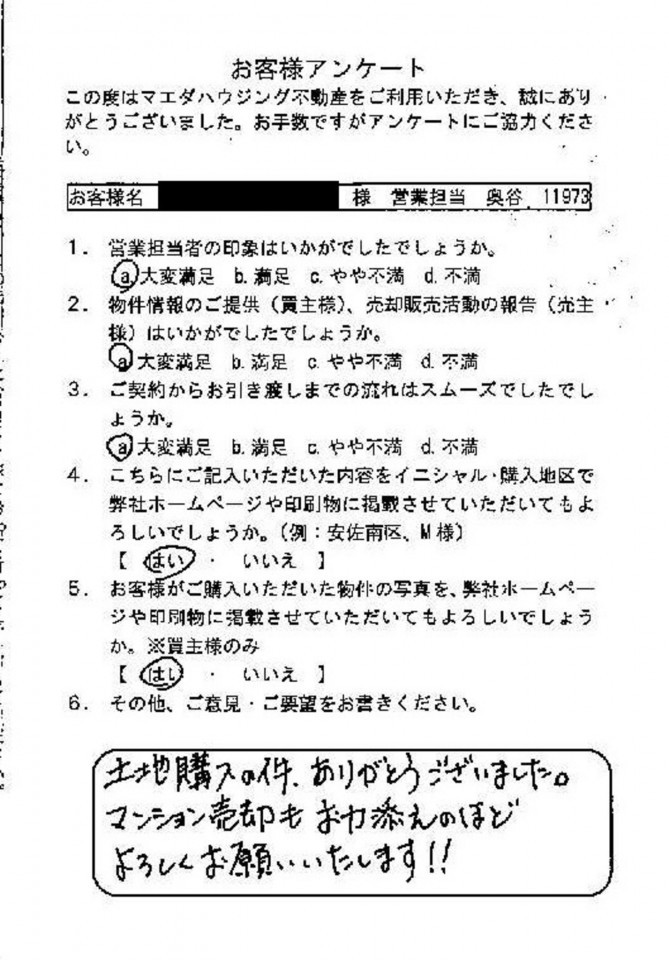 お客様アンケート
この度はマエダハウジング不動産をご利用いただき、誠にあり
がとうございました。お手数ですがアンケートにご協力くださ
い。
お客様名 様 営業担当 奥谷 11973
1. 営業担当者の印象はいかがでしたでしょうか。
a.大変満足 b.満足 c.やや不満 d.不満
2. 物件情報のご提供（買主様）、売却販売活動の報告（売主
様）はいかがでしたでしょうか。
a.大変満足 b.満足 c.やや不満 d.不満
3. ご契約からお引き渡しまでの流れはスムーズでしたでし
ょうか。
a.大変満足 b.満足 c.やや不満 d.不満
4. こちらにご記入いただいた内容をイニシャル・購入地区で
弊社ホームページや印刷物に掲載させていただいてもよ
ろしいでしょうか。（例：安佐南区、M様）
【 はい ・ いいえ 】
5. お客様がご購入いただいた物件の写真を、弊社ホームペー
ジや印刷物に掲載させていただいてもよろしいでしょう
か。※買主様のみ
【 はい ・ いいえ 】
6. その他、ご意見・ご要望をお書きください。
土地購入の件、ありがとうございました。
マンション売却も お力添えのほど
よろしくお願いいたします!!